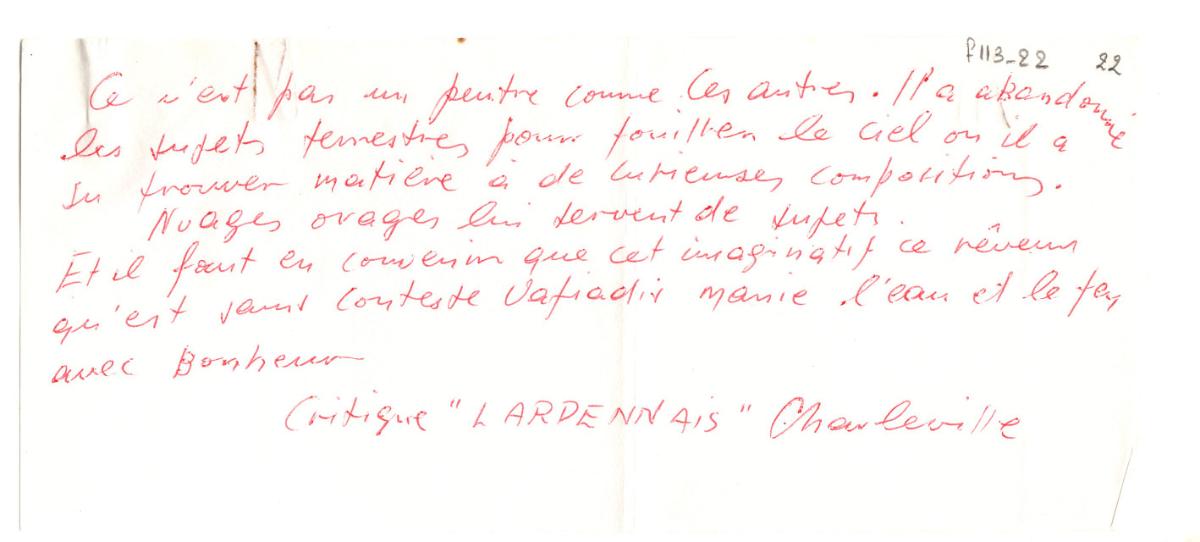 f113-22 22
Ce n'est pas un peintre comme les autres. Il a abandonné
les sujets terrestres pour fouiller le ciel ou il a
su trouver matière à de curieuses compositions.
Nuages orages lui servent de sujets.
Et il faut en convenir que cet imaginatif ce rêveur
qu'est sans conteste Vafiadis manie l'eau et le feu
avec Bonheur
Critique "LARDENNAIS" Charleville